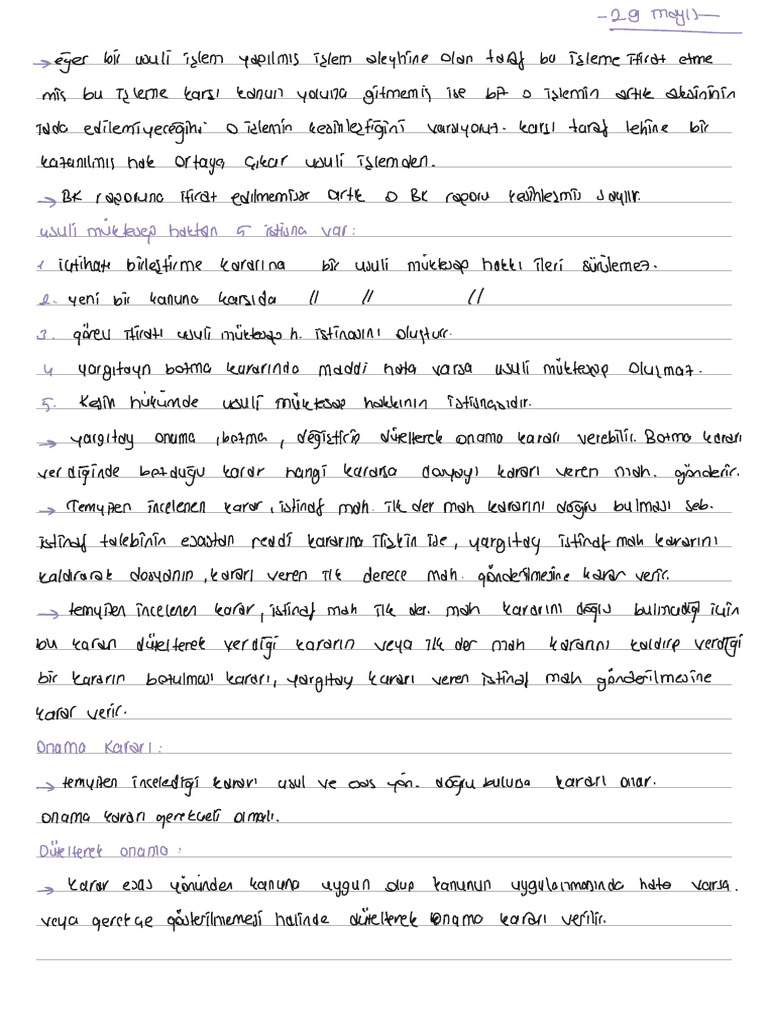 - 29 mayıs -
→ eğer bir usuli işlem yapılmış işlem aleyhine olan taraf bu işleme itirat etme
miş bu işleme karşı kanun yoluna gitmemiş ise bit o işlemin artık aksininin
iada edilemiyeceğini o işlemin kesinleştiğini varsıyorut. karşı taraf lehine bir
katanılmış hak ortaya çıkar usuli işlemden.
→ BK raporuna itirat edilmemişse artık o BK raporu kesinleşmiş sayılır.
usuli müktesep haktan 5 istisna var:
1. içtihatı birleştirme kararına bir usuli müktesep hakkı ileri sürülemet.
2. yeni bir kanuna karşıda // // //
3. görev itiratı usuli müktesep h. istinasını oluşturr.
4 yargıtayın botma kararında maddi hata varsa usuli müktesep olulmat.
5. Kesin hükümde usuli müktesep hakkının istisnasıdır.
→ yargıtay onama, botma, değiştirip dütelterek onama kararı verebilir. Botma kararı
verdiğinde botduğu karar hangi kararsa dosyayı kararı veren mah. gönderir.
→ Temyiten incelenen karar, istinaf mah. ilk der mah kararını doğru bulması seb.
istinaf talebinin esastan reddi kararına ilişkin ise, yargıtay istinaf mah kararını
kaldırarak dosyanın, kararı veren ilk derece mah. gönderilmesine karar verir.
→ temyiten incelenen karar, istinaf mah ilk der. mah kararını doğru bulmadığı için
bu kararı dütelterek verdiği kararın veya ilk der mah kararını kaldırıp verdiği
bir kararın botulması kararı, yargıtay kararı veren istinaf mah gönderilmesine
karar verir.
Onama Kararı:
→ temyiten incelediği kararı usul ve esas yön. doğru bulursa kararı onar.
onama kararı gerekçeli olmalı.
Dütelterek onama:
→ Karar esas yönünden kanuna uygun olup kanunun uygulanmasında hata varsa.
veya gerekçe gösterilmemesi halinde dütelterek onama kararı verilir.